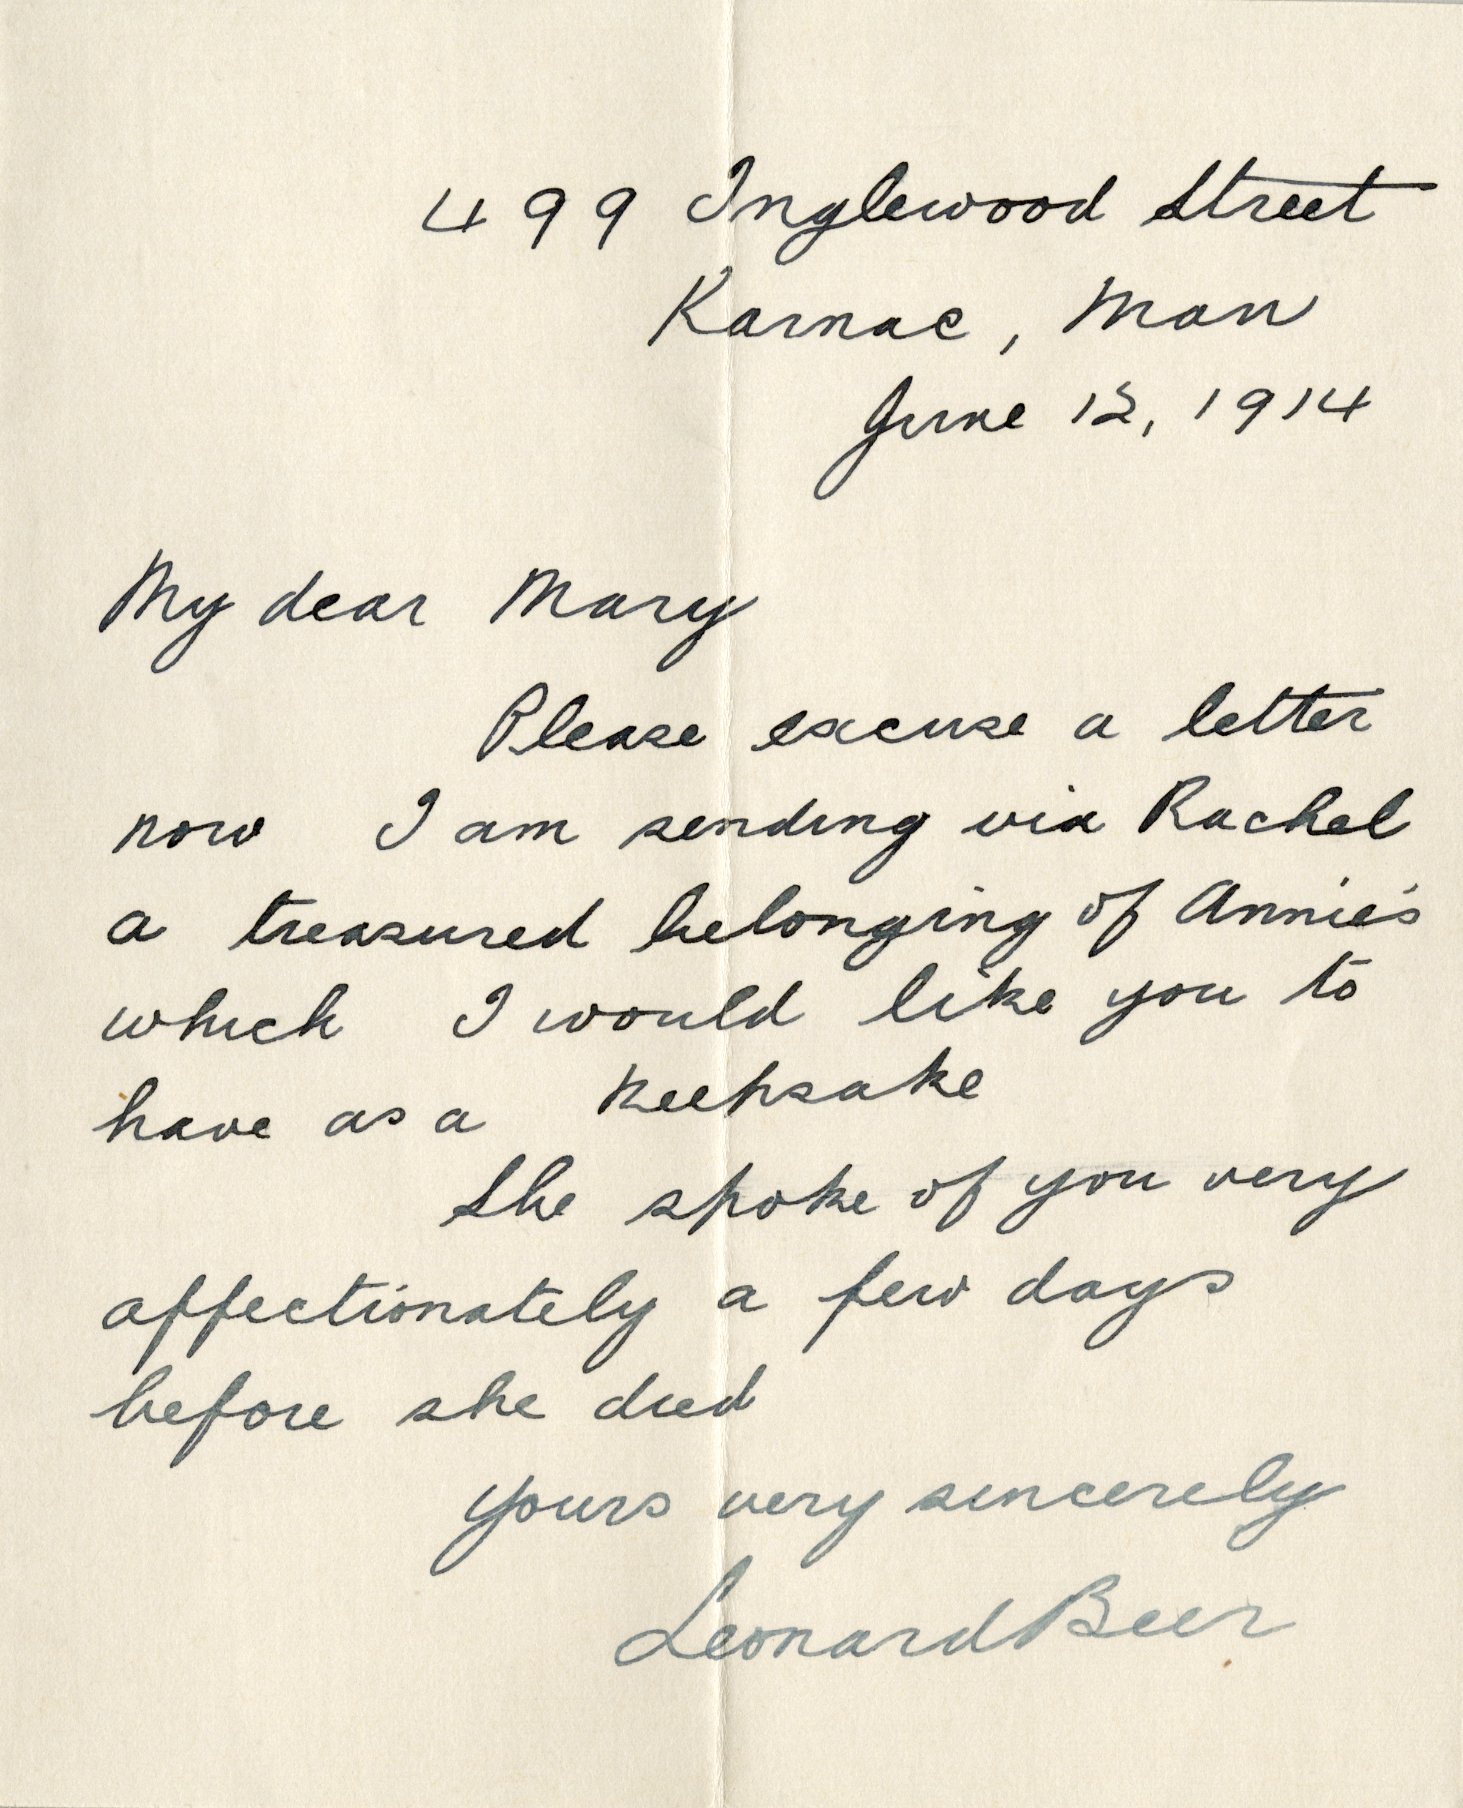 499 Inglewood Street
Karnac, Man
June 12, 1914
My dear Mary
Please excuse a letter
now I am sending via Rachel
a treasured belonging of Annie's
which I would like you to
have as a keepsake
She spoke of you very
affectionately a few days
before she died
yours very sincerely
Leonard Beer